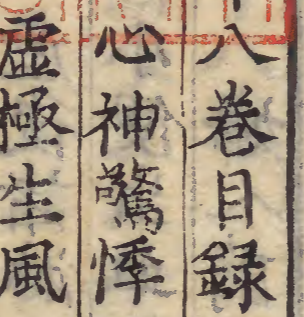 八巻目録
心神驚悸
虚極生風